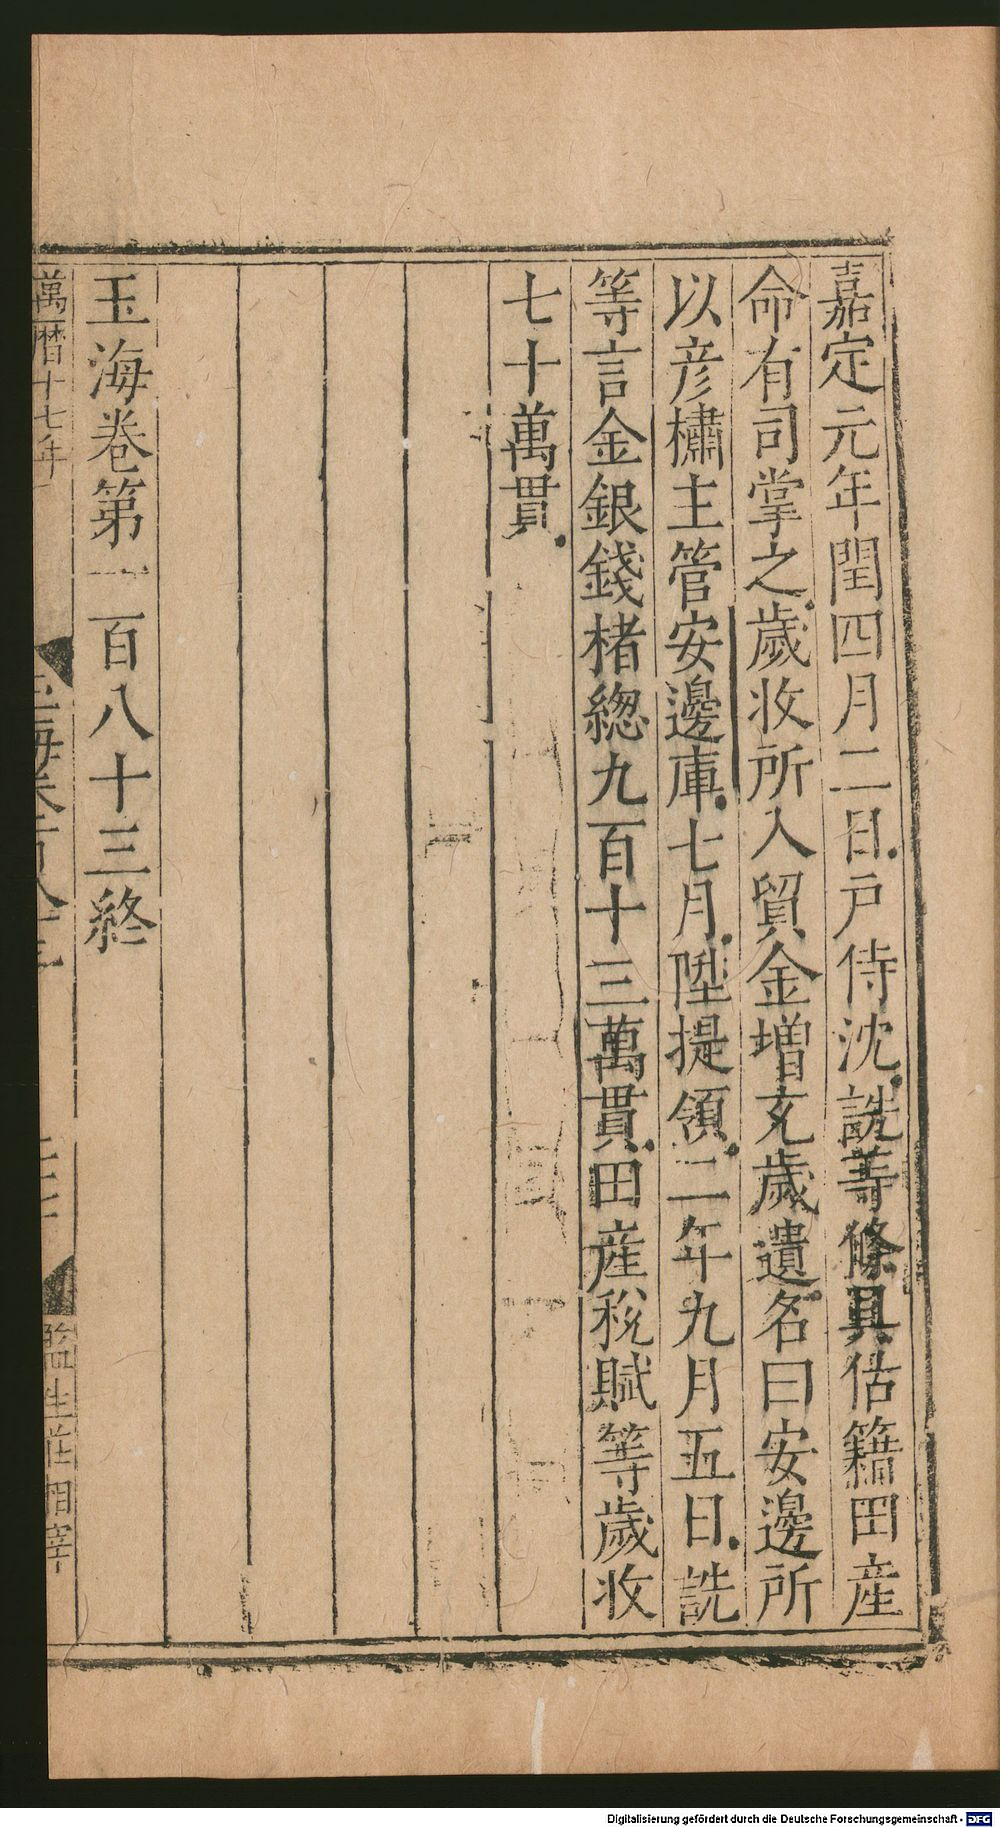 嘉定元年閏四月二日戶侍沈詵等條具估籍田産
命有司掌之歲收所入貿金增支歲遺名曰安邊所
以彦橚主管安邊庫七月陞提領二年九月五日詵
等言金銀錢楮緫九百十三萬貫田産稅賦等歲收
七十萬貫
玉海卷第一百八十三終
萬曆十七年
玉海卷百八十三
監生莊相宰
Digitalisierung gefördert durch die Deutsche Forschungsgemeinschaft - DFG